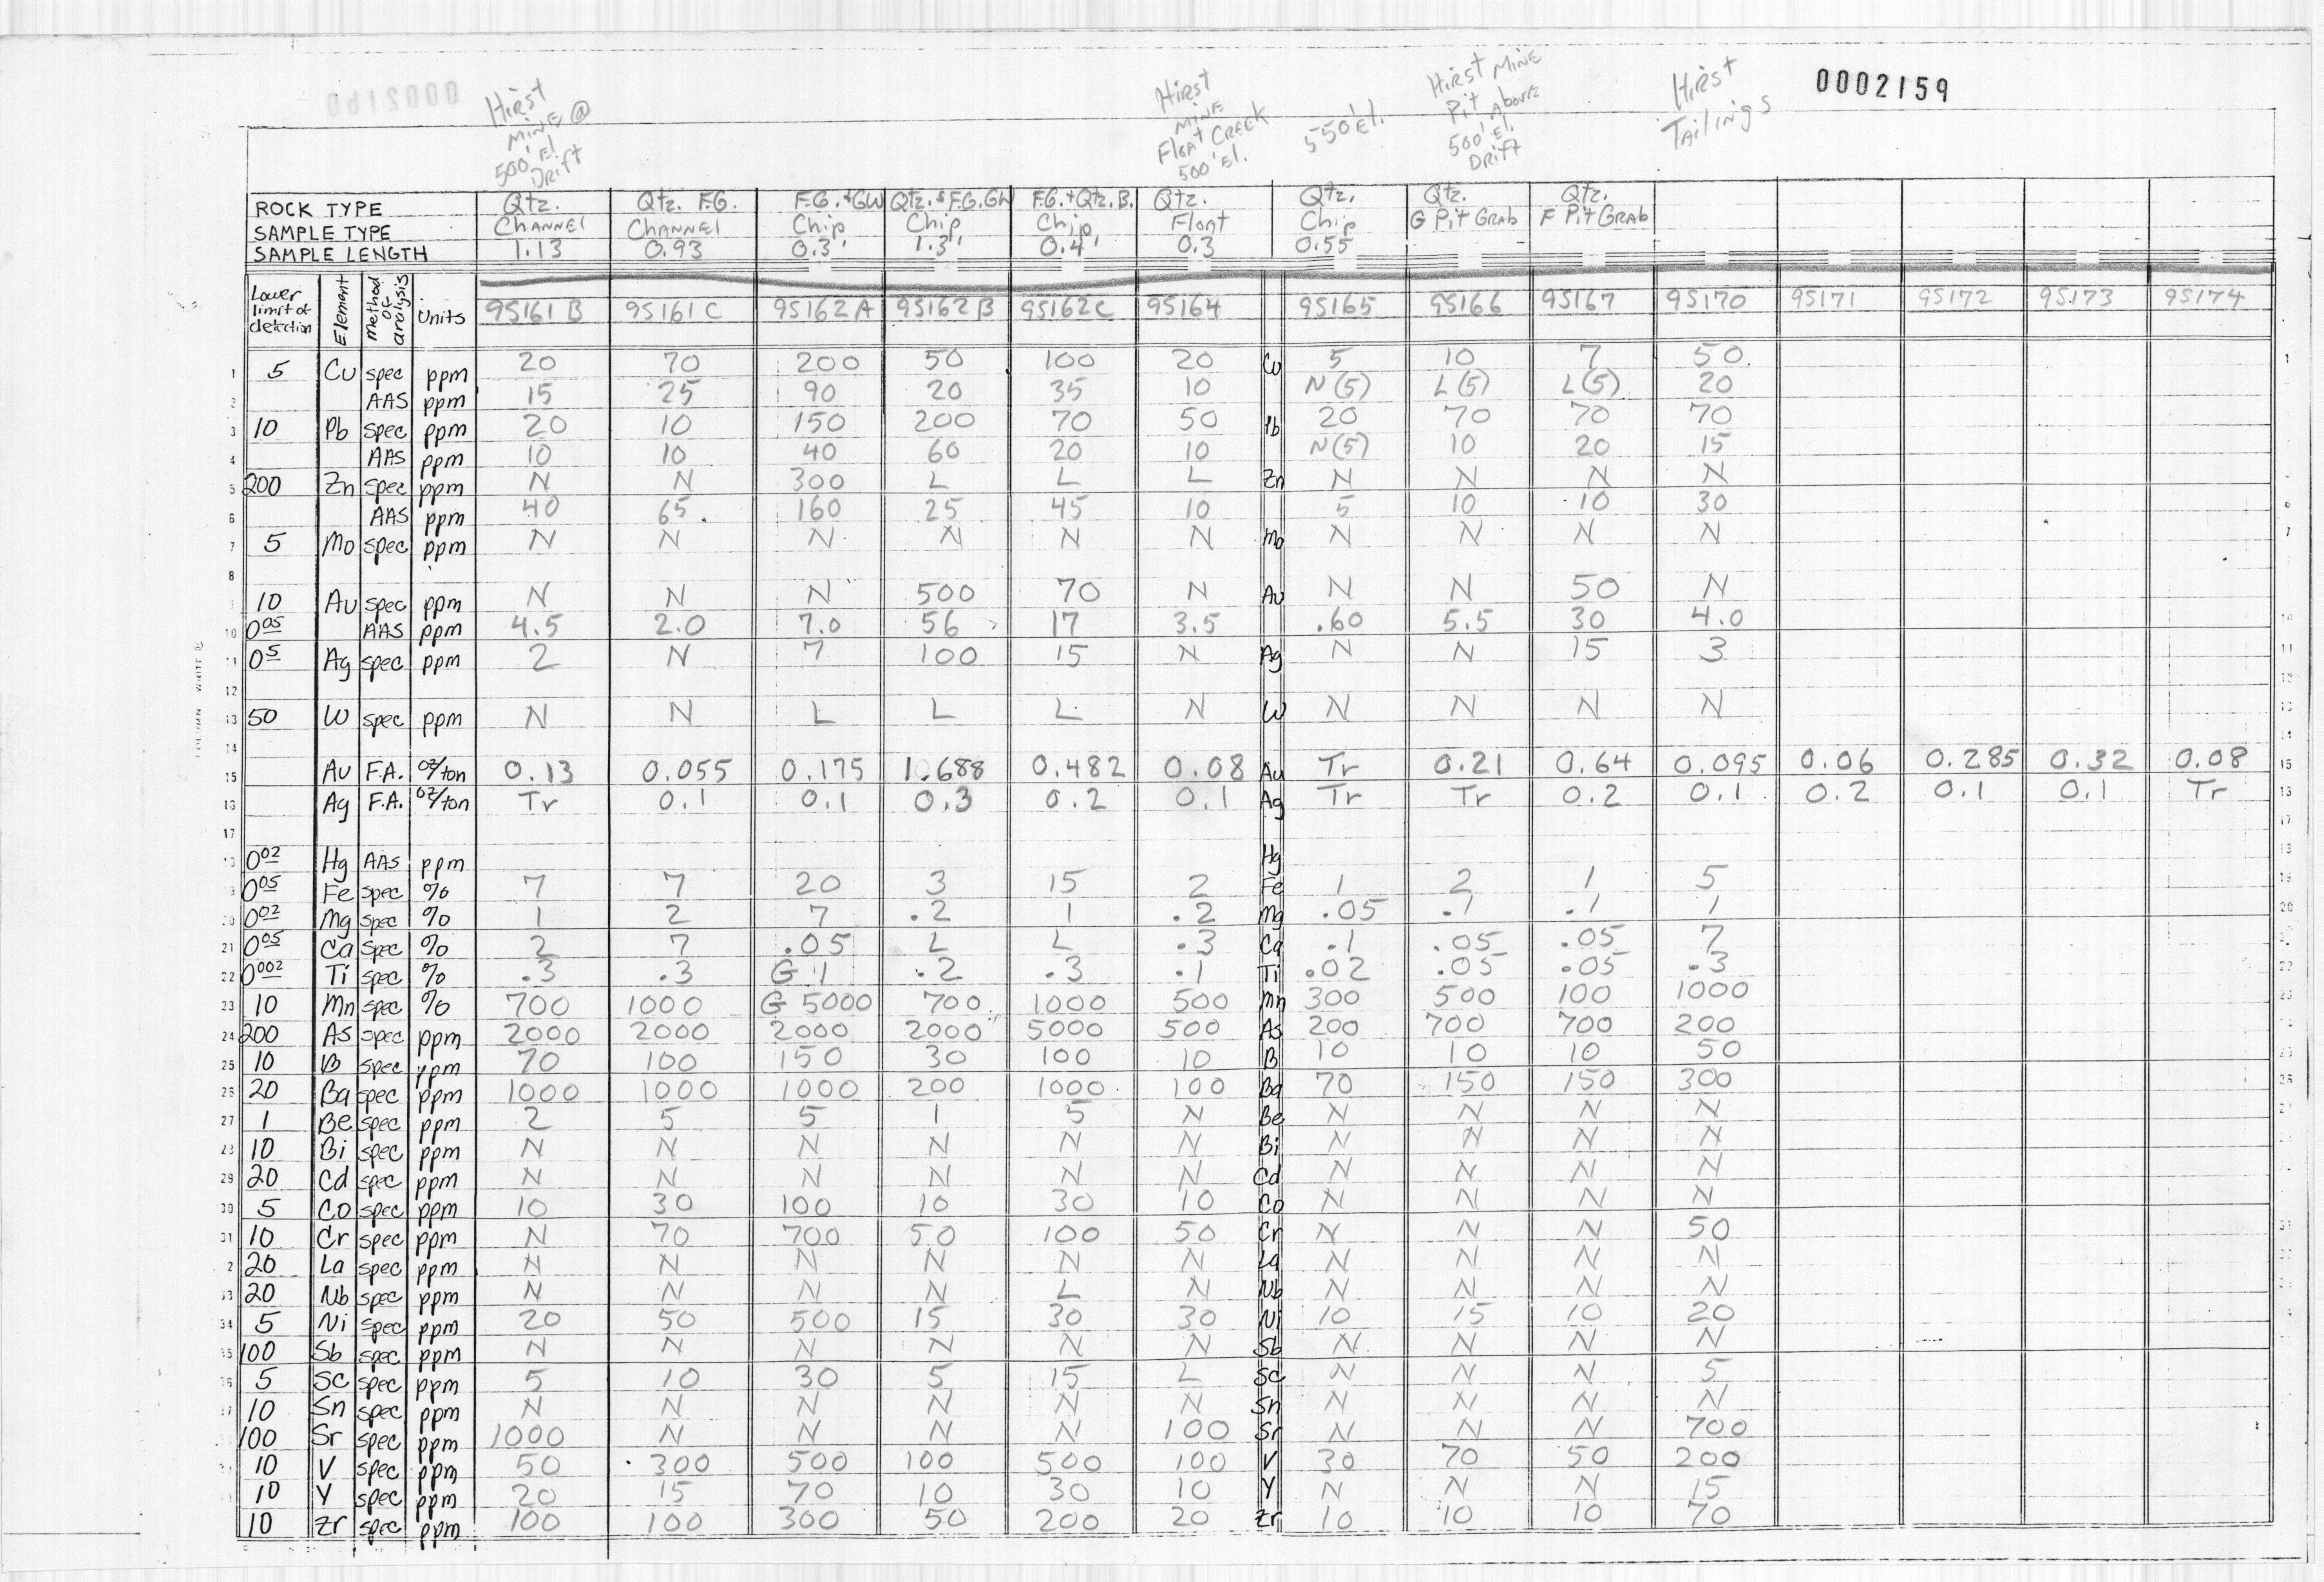 0002159
0002160
Hirst Mine @ 500' El. Drift
Hirst Mine Float Creek 500' El.
550' El.
Hirst Mine Pit Above 500' El. Drift
Hirst Tailings
ROCK TYPE Qtz. Qtz. F.G. F.G. + GW Qtz. & F.G. GW F.G. + Qtz. B. Qtz. Qtz. Qtz. Qtz.
SAMPLE TYPE Channel Channel Chip Chip Chip Float Chip G Pit Grab F Pit Grab
SAMPLE LENGTH 1.13 0.93 0.3' 1.3' 0.4' 0.3 0.55
Lower limit of detection Element Method of analysis Units 9S161B 9S161C 9S162A 9S162B 9S162C 9S164 9S165 9S166 9S167 9S170 9S171 9S172 9S173 9S174
1 5 Cu spec ppm 20 70 200 50 100 20 Cu 5 10 7 50
2 AAS ppm 15 25 90 20 35 10 N(5) L(5) L(5) 20
3 10 Pb spec ppm 20 10 150 200 70 50 Pb 20 70 70 70
4 AAS ppm 10 10 40 60 20 10 N(5) 10 20 15
5 200 Zn spec ppm N N 300 L L L Zn N N N N
6 AAS ppm 40 65 160 25 45 10 5 10 10 30
7 5 Mo spec ppm N N N N N N Mo N N N N
8
10 Au spec ppm N N N 500 70 N Au N N 50 N
10 0.05 AAS ppm 4.5 2.0 7.0 56 17 3.5 .60 5.5 30 4.0
11 0.5 Ag spec ppm 2 N 7 100 15 N Ag N N 15 3
12
13 50 W spec ppm N N L L L N W N N N N
14
15 Au F.A. oz/ton 0.13 0.055 0.175 1.688 0.482 0.08 Au Tr 0.21 0.64 0.095 0.06 0.285 0.32 0.08 15
16 Ag F.A. oz/ton Tr 0.1 0.1 0.3 0.2 0.1 Ag Tr Tr 0.2 0.1 0.2 0.1 0.1 Tr
17
0.02 Hg AAS ppm Hg
0.05 Fe spec % 7 7 20 3 15 2 Fe 1 2 1 5
20 0.02 Mg spec % 1 2 7 .2 1 .2 Mg .05 .1 .1 1
21 0.05 Ca spec % 2 7 .05 L L .3 Ca .1 .05 .05 7
22 0.002 Ti spec % .3 .3 G 1 .2 .3 .1 Ti .02 .05 .05 .3
23 10 Mn spec % 700 1000 G 5000 700 1000 500 Mn 300 500 100 1000
24 200 As spec ppm 2000 2000 2000 2000 5000 500 As 200 700 700 200
25 10 B spec ppm 70 100 150 30 100 10 B 10 10 10 50
26 20 Ba spec ppm 1000 1000 1000 200 1000 100 Ba 70 150 150 300
27 1 Be spec ppm 2 5 5 1 5 N Be N N N N
28 10 Bi spec ppm N N N N N N Bi N N N N
29 20 Cd spec ppm N N N N N N Cd N N N N
30 5 Co spec ppm 10 30 100 10 30 10 Co N N N N
31 10 Cr spec ppm N 70 700 50 100 50 Cr N N N 50
20 La spec ppm N N N N N N La N N N N
20 Nb spec ppm N N N N L N Nb N N N N
34 5 Ni spec ppm 20 50 500 15 30 30 Ni 10 15 10 20
35 100 Sb spec ppm N N N N N N Sb N N N N
5 Sc spec ppm 5 10 30 5 15 L Sc N N N 5
10 Sn spec ppm N N N N N N Sn N N N N
100 Sr spec ppm 1000 N N N N 100 Sr N N N 700
10 V spec ppm 50 300 500 100 500 100 V 30 70 50 200
10 Y spec ppm 20 15 70 10 30 10 Y N N N 15
10 Zr spec ppm 100 100 300 50 200 20 Zr 10 10 10 70